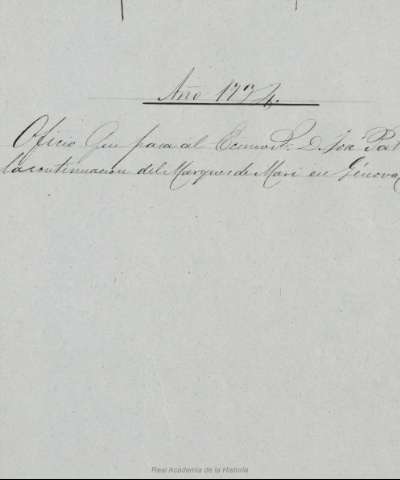 Año 1774.
Oficio que pasa al Ecxmo. Sr. D. Jose Pat
la continuacion del Marques de Mari en Génova
Real Academia de la Historia